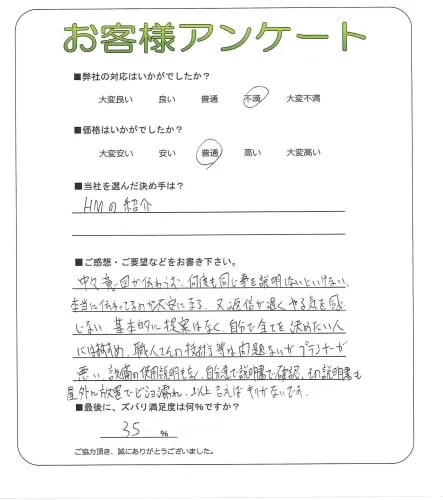 お客様アンケート
■弊社の対応はいかがでしたか?
大変良い 良い 普通 不満 大変不満
■価格はいかがでしたか?
大変安い 安い 普通 高い 大変高い
■当社を選んだ決め手は?
HMの紹介
■ご感想・ご要望などをお書き下さい。
中々意図が伝わらず、何度も同じ事を説明しないといけない、
本当に伝わってるのか不安になる。又返信が遅くやる気を感
じない。基本的に提案はなく、自分で全てを決めたい人
にはお勧め、職人さんの技術等は問題ないがプランナーが
悪い、設備の使用説明もなく、自分達で説明書で確認、その説明書も
屋外に放置でビショ濡れ、以上言えばキリがないです。
■最後に、ズバリ満足度は何%ですか?
35 %
ご協力頂き、誠にありがとうございました。